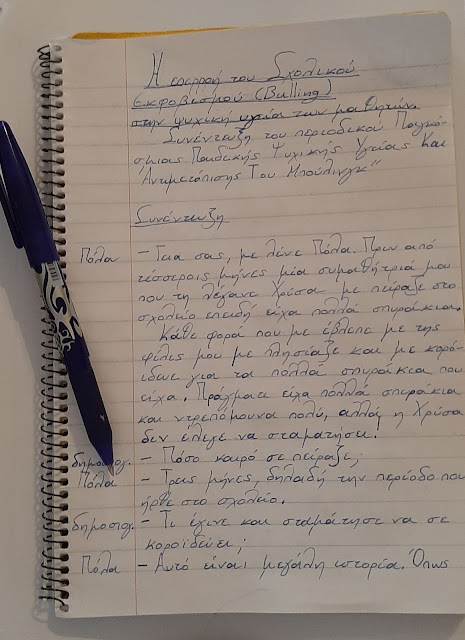 Η επιρροή του Σχολικού
Εκφοβισμού (Bulling)
στην ψυχική υγεία των μαθητών
Συνέντευξη του περιοδικού Παγκό-
σμιας Παιδικής Ψυχικής Υγείας Και
"Αντιμετόπισης Του Μπούλινγκ"
Συνέντευξη
Πόλα – Γεια σας, με λένε Πόλα. Πριν από
τέσσερεις μήνες μία συμαθήτριά μου
που τη λέγανε Χρύσα με πείραζε στο
σχολείο επειδή είχα πολλά σπυράκια.
Κάθε φορά που με έβλεπε με της
φίλες μου με πλησίαζε και με κορό-
ιδευε για τα πολλά σπυράκια που
είχα. Πράγματι είχα πολλά σπυράκια
και ντρεπόμουνα πολύ, αλλά, η Χρύσα
δεν έλεγε να σταματήσει!
δημοσιογ. – Πόσο καιρό σε πείραζε;
Πόλα – Τρεις μήνες, δηλαδή την περίοδο που
ήρθε στο σχολείο.
δημοσιογ. – Τι έγινε και σταμάτησε να σε
κοροϊδεύει;
Πόλα – Αυτό είναι μεγάλη ιστορία. Όπως